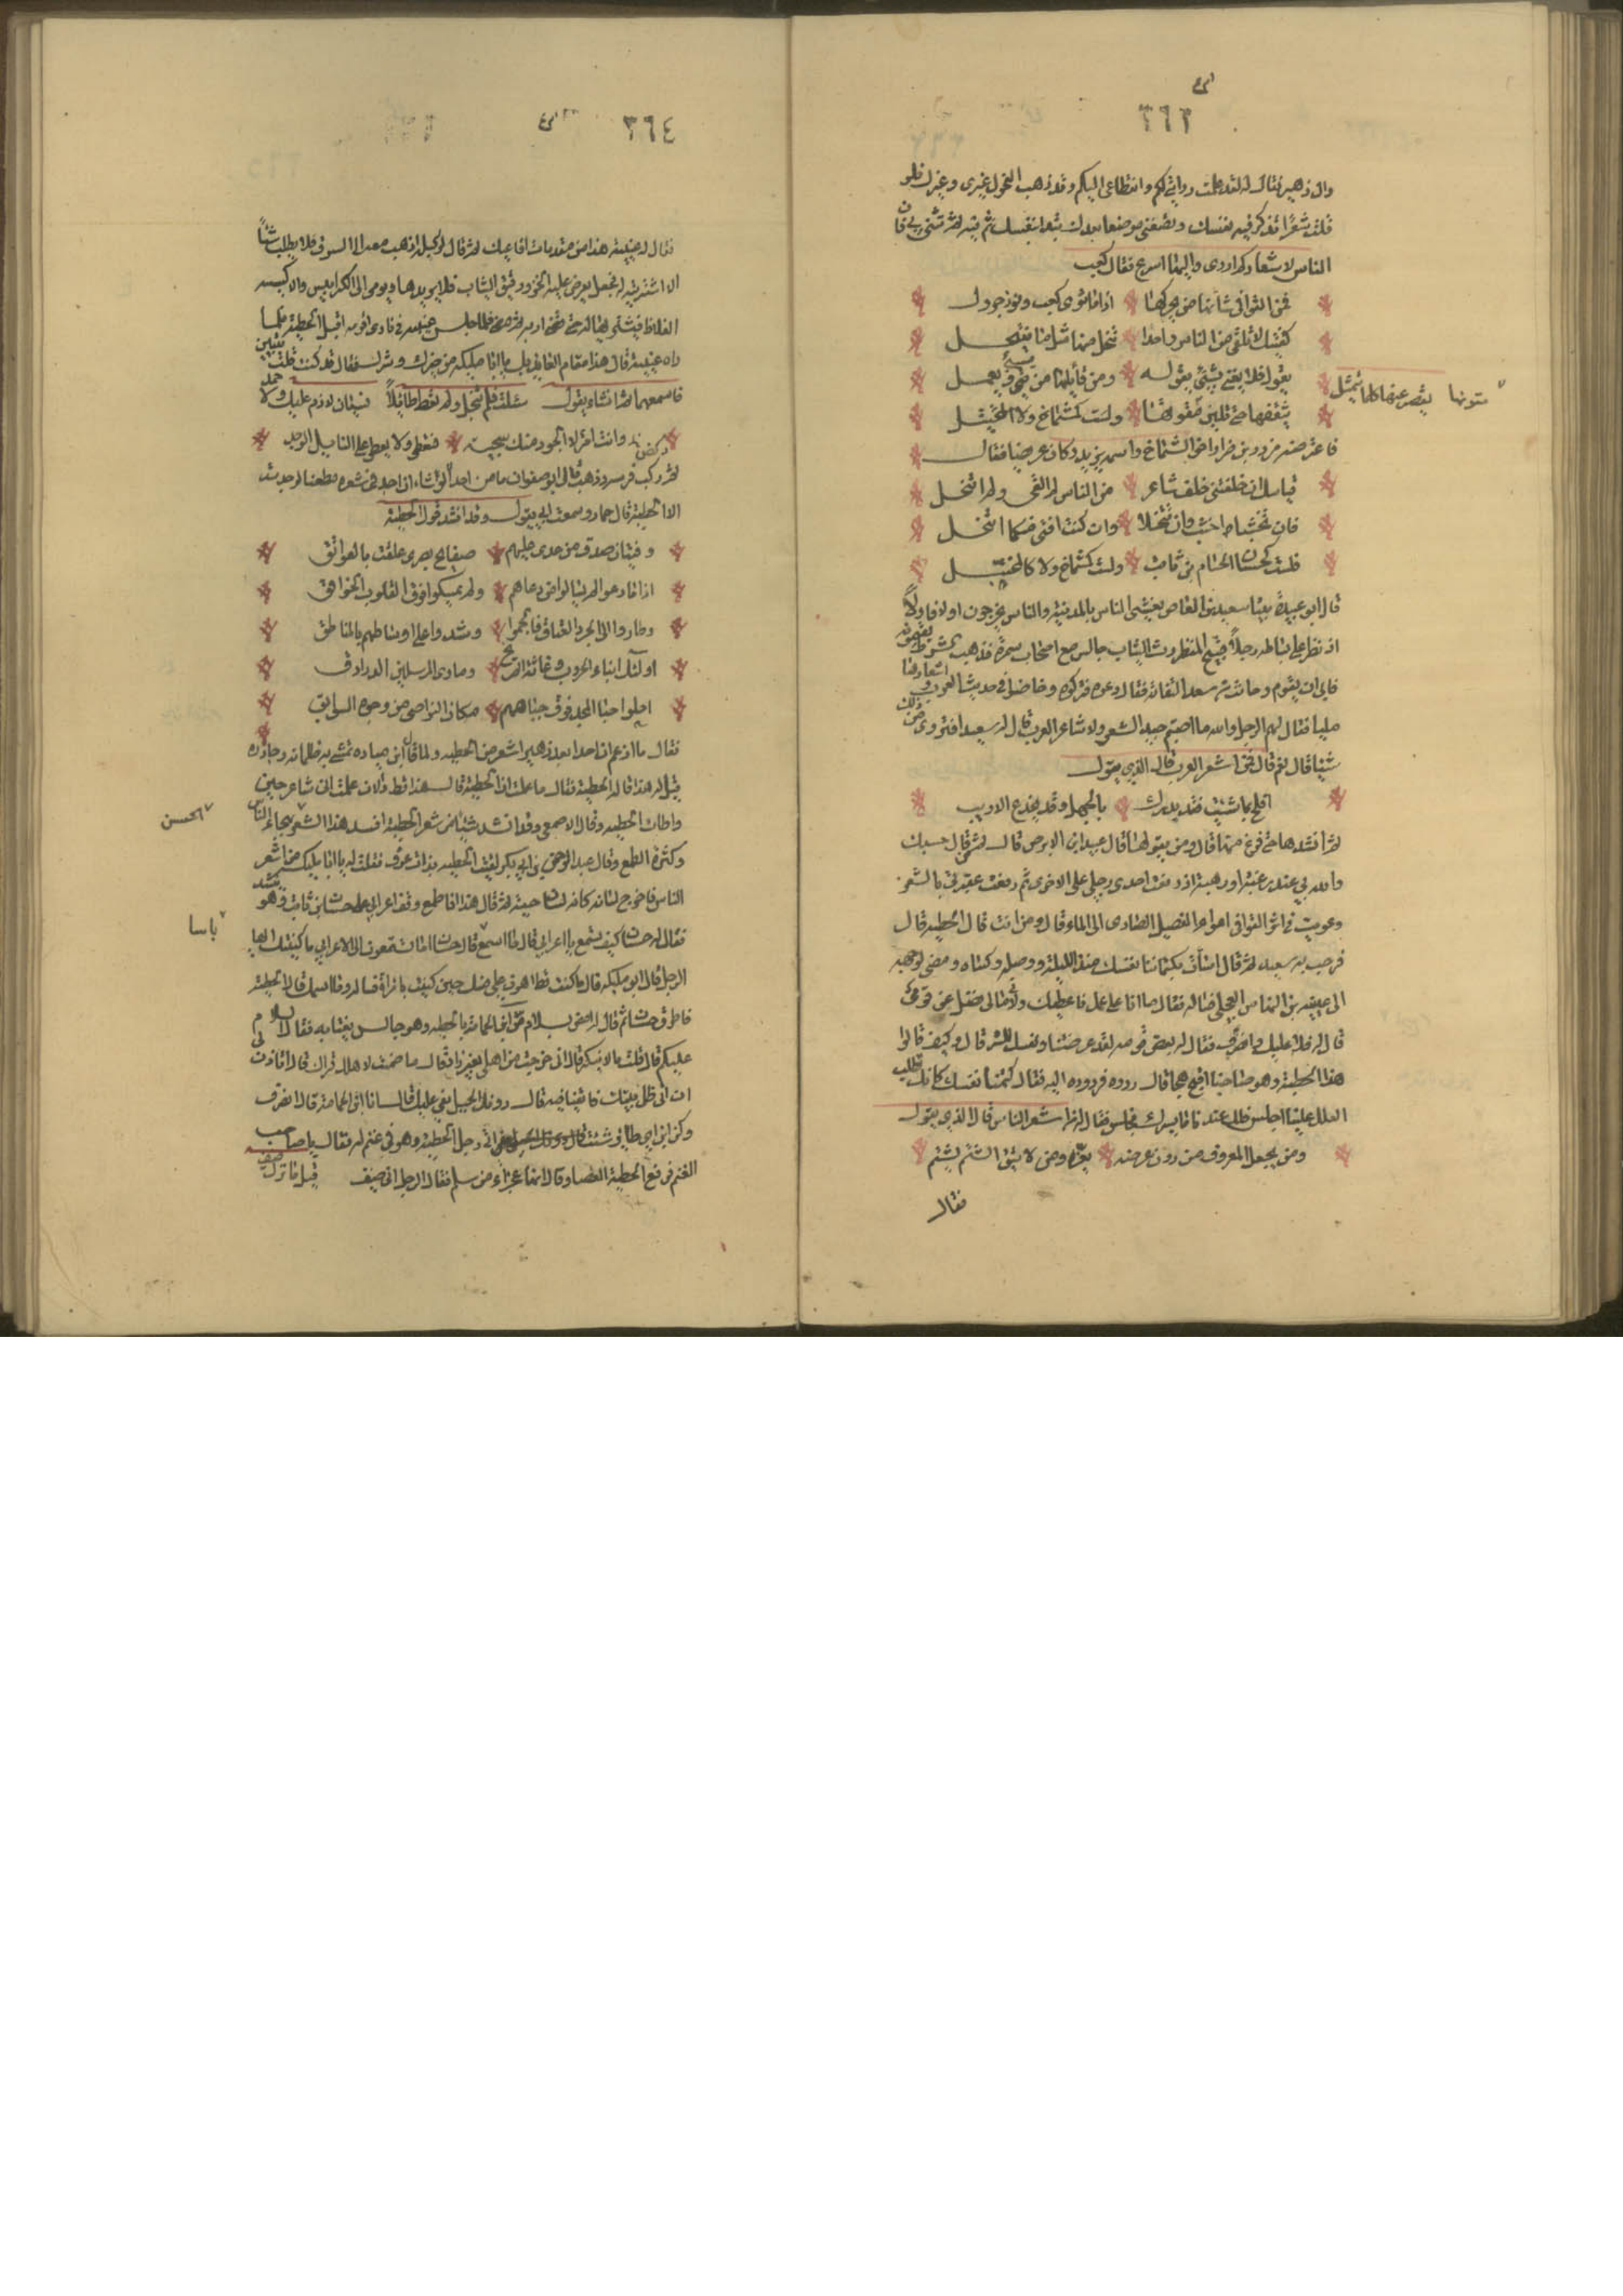 ٣٦٣
وال زهير فقال له لقد علمت روايتي لكم وانقطاعي اليكم وقد ذهب الفحول غيري وغيرك فلو
قلت شعرا تذكر فيه نفسك وتضعني موضعا بعدك تبدا بنفسك ثم فيه ثم تثني بي فان
الناس لاشعاركم اروى واليها اسرع فقال كعب
فمن للقوافي شانها من يحوكها اذا ما ثوى كعب وفوز جرول
كفيتك لا تلقى من الناس واحدا تنخل منها مثل ما نتنخل
يقول فلا يعيى بشيء يقوله ومن قائليها من يسيء ويعمل
يثقفها حتى تلين متونها
يقصر عنها كلما يتمثل
ولست كشماخ ولا المخبل
فاعترضه مزرد بن ضرار اخو الشماخ واسمه يزيد وكان عريضا فقال
فباسك ان خلفتني خلف شاعر من الناس لم اكفي ولم اتنخل
فان تخشبا اخشب وان تتنخلا وان كنت افتى منكما اتنخل
فلست كحسان الحسام بن ثابت ولست كشماخ ولا كالمخبل
قال ابو عبيدة بينا سعيد بن العاص يعشي الناس بالمدينة والناس يخرجون اولا فاولا
اذ نظر على بساطه رجلا قبيح المنظر رث الثياب جالس مع اصحاب سمره فذهب الشرط يقيمونه
فابى ان يقوم وحانت من سعيد التفاتة فقال دعوه فتركوه وخاضوا في حديث العرب واشعارها
مليا فقال لهم الرجل والله ما اصبتم جيد الشعر ولا شاعر العرب قال له سعيد افتروي من ذلك
شيئا قال نعم قال فمن اشعر العرب قال الذي يقول
افلح بما شئت فقد يدرك بالجهل وقد يخدع الاريب
ثم انشدها حتى فرغ منها قال ومن يقولها قال عبيد ابن الابرص قال ثم من قال حسبك
والله بي عند رغبة او رهبة اذ رفعت احدى رجلي على الاخرى ثم رفعت عقيرتي بالشعر
وعويت في اثر القوافي عواء الفصيل الصادى الى الماء قال ومن انت قال الحطيئة قال
فرحب به سعيد ثم قال اسات بكتماننا نفسك منذ الليلة ووصله وكساه ومضى لوجهه
الى عيينة بن النهاس العجلي فساله فقال ما انا على عمل فاعطيك ولا في مالي فضل عن قومي
قال له فلا عليك وانصرف فقال له بعض قومه لقد عرضتنا ونفسك للشر قال وكيف قالوا
هذا الحطيئة وهو هاجينا اقبح هجا قال ردوه فردوه اليه فقال كتمتنا نفسك كانك تطلب
العلل علينا اجلس فلك عندنا ما يسرك فجلس فقال له من اشعر الناس قال الذي يقول
ومن يجعل المعروف من دون عرضه يفره ومن لا يتق الشتم يشتم
فقال
٣٦٤
فقال له عيينة هذا من مقدمات افاعيك ثم قال لوكيله اذهب معه الى السوق فلا يطلب شيئا
الا اشتريته له فجعل يعرض عليه الخز ورقيق الثياب فلا يريدها ويومي الى الكرابيس والاكسية
الغلاظ فيشتريها له حتى قضى اربه ثم مضى فلما جلس عيينة في نادي قومه اقبل الحطيئة فلما
راه عيينة قال هذا مقام العائذ بك يا ابا مليكة من خيرك وشرك فقال قد كنت قلت بيتين
فاسمعهما ثم انشاء يقول سئلت فلم تبخل ولم تعط طائلا فسيان لا ذم عليك ولا حمد
وانت امرؤ لا الجود منك سجية فتعطي ولا يعطى على النايل الوجد
ثم ركض فرسه وذهب قال ابو صفوان ما من احد الا لو تشاء ان اجد في شعره مطعنا لوجدت
الا الحطيئة قال حماد وسمعت ابي يقول وقد انشد قول الحطيئة
وفتيان صدق من عدي عليهم صفايح بصرى علقت بالعواتق
اذا ما دعوا لم يسالوا من دعاهم ولم يمسكوا فوق القلوب الخوافق
وطاروا الى الجرد العتاق فالجموا وشدوا على اوساطهم بالمناطق
اولئك ابناء الحروب وغاثة الصريخ وماوى المرسلين الدرادق
احلوا حياض المجد فوق جباههم مكان النواصي من وجوه السوابق
فقال ما ازعم ان احدا بعد زهير اشعر من الحطيئة ولما قال ابن ميادة تمشى به ظلمانه وجآذره
قيل له هذا قاله الحطيئة فقال ما علمت اذا الحطيئة قال هذا قط والان علمت اني شاعر حين
واطات الحطيئة وقال الاصمعي وقد انشد شيئا من شعر الحطيئة افسد هذا الشعر الحسن بهجاء الناس
وكثرة الطمع وقال عبد الرحمن بن ابي بكر لقيت الحطيئة بذات عرق فقلت له يا ابا مليكة من اشعر
الناس فاخرج لسانه كانه لسان حية ثم قال هذا اذا طمع وقف اعرابي على حسان بن ثابت وهو ينشد
فقال له حسان كيف تسمع يا اعرابي قال ما اسمع باسا قال حسان اما تسمعون الى الاعرابي ما كنيتك ايها
الرجل قال ابو مليكة قال ما كنت قط اهون علي منك حين كنيت بامراة فما اسمك قال الحطيئة
فاطرق حسان ثم قال له امض بسلام مر ابن الحمامة بالحطيئة وهو جالس بفناء بيته فقال السلام
عليكم قال قلت ما لا ينكر قال اني خرجت من اهلي بغير زاد فقال ما ضمنت لاهلك قراك قال افتاذن لي
ان اتى ظل بيتك فاتفيا فيه قال دونك الجبل يفي عليك قال انا ابن الحمامة قال انصرف
وكن ابن اي طائر شئت اتى رجل الحطيئة وهو في غنم له فقال يا صاحب
الغنم فرفع الحطيئة العصا وقال انها عجراء من سلم فقال الرجل اني ضيف